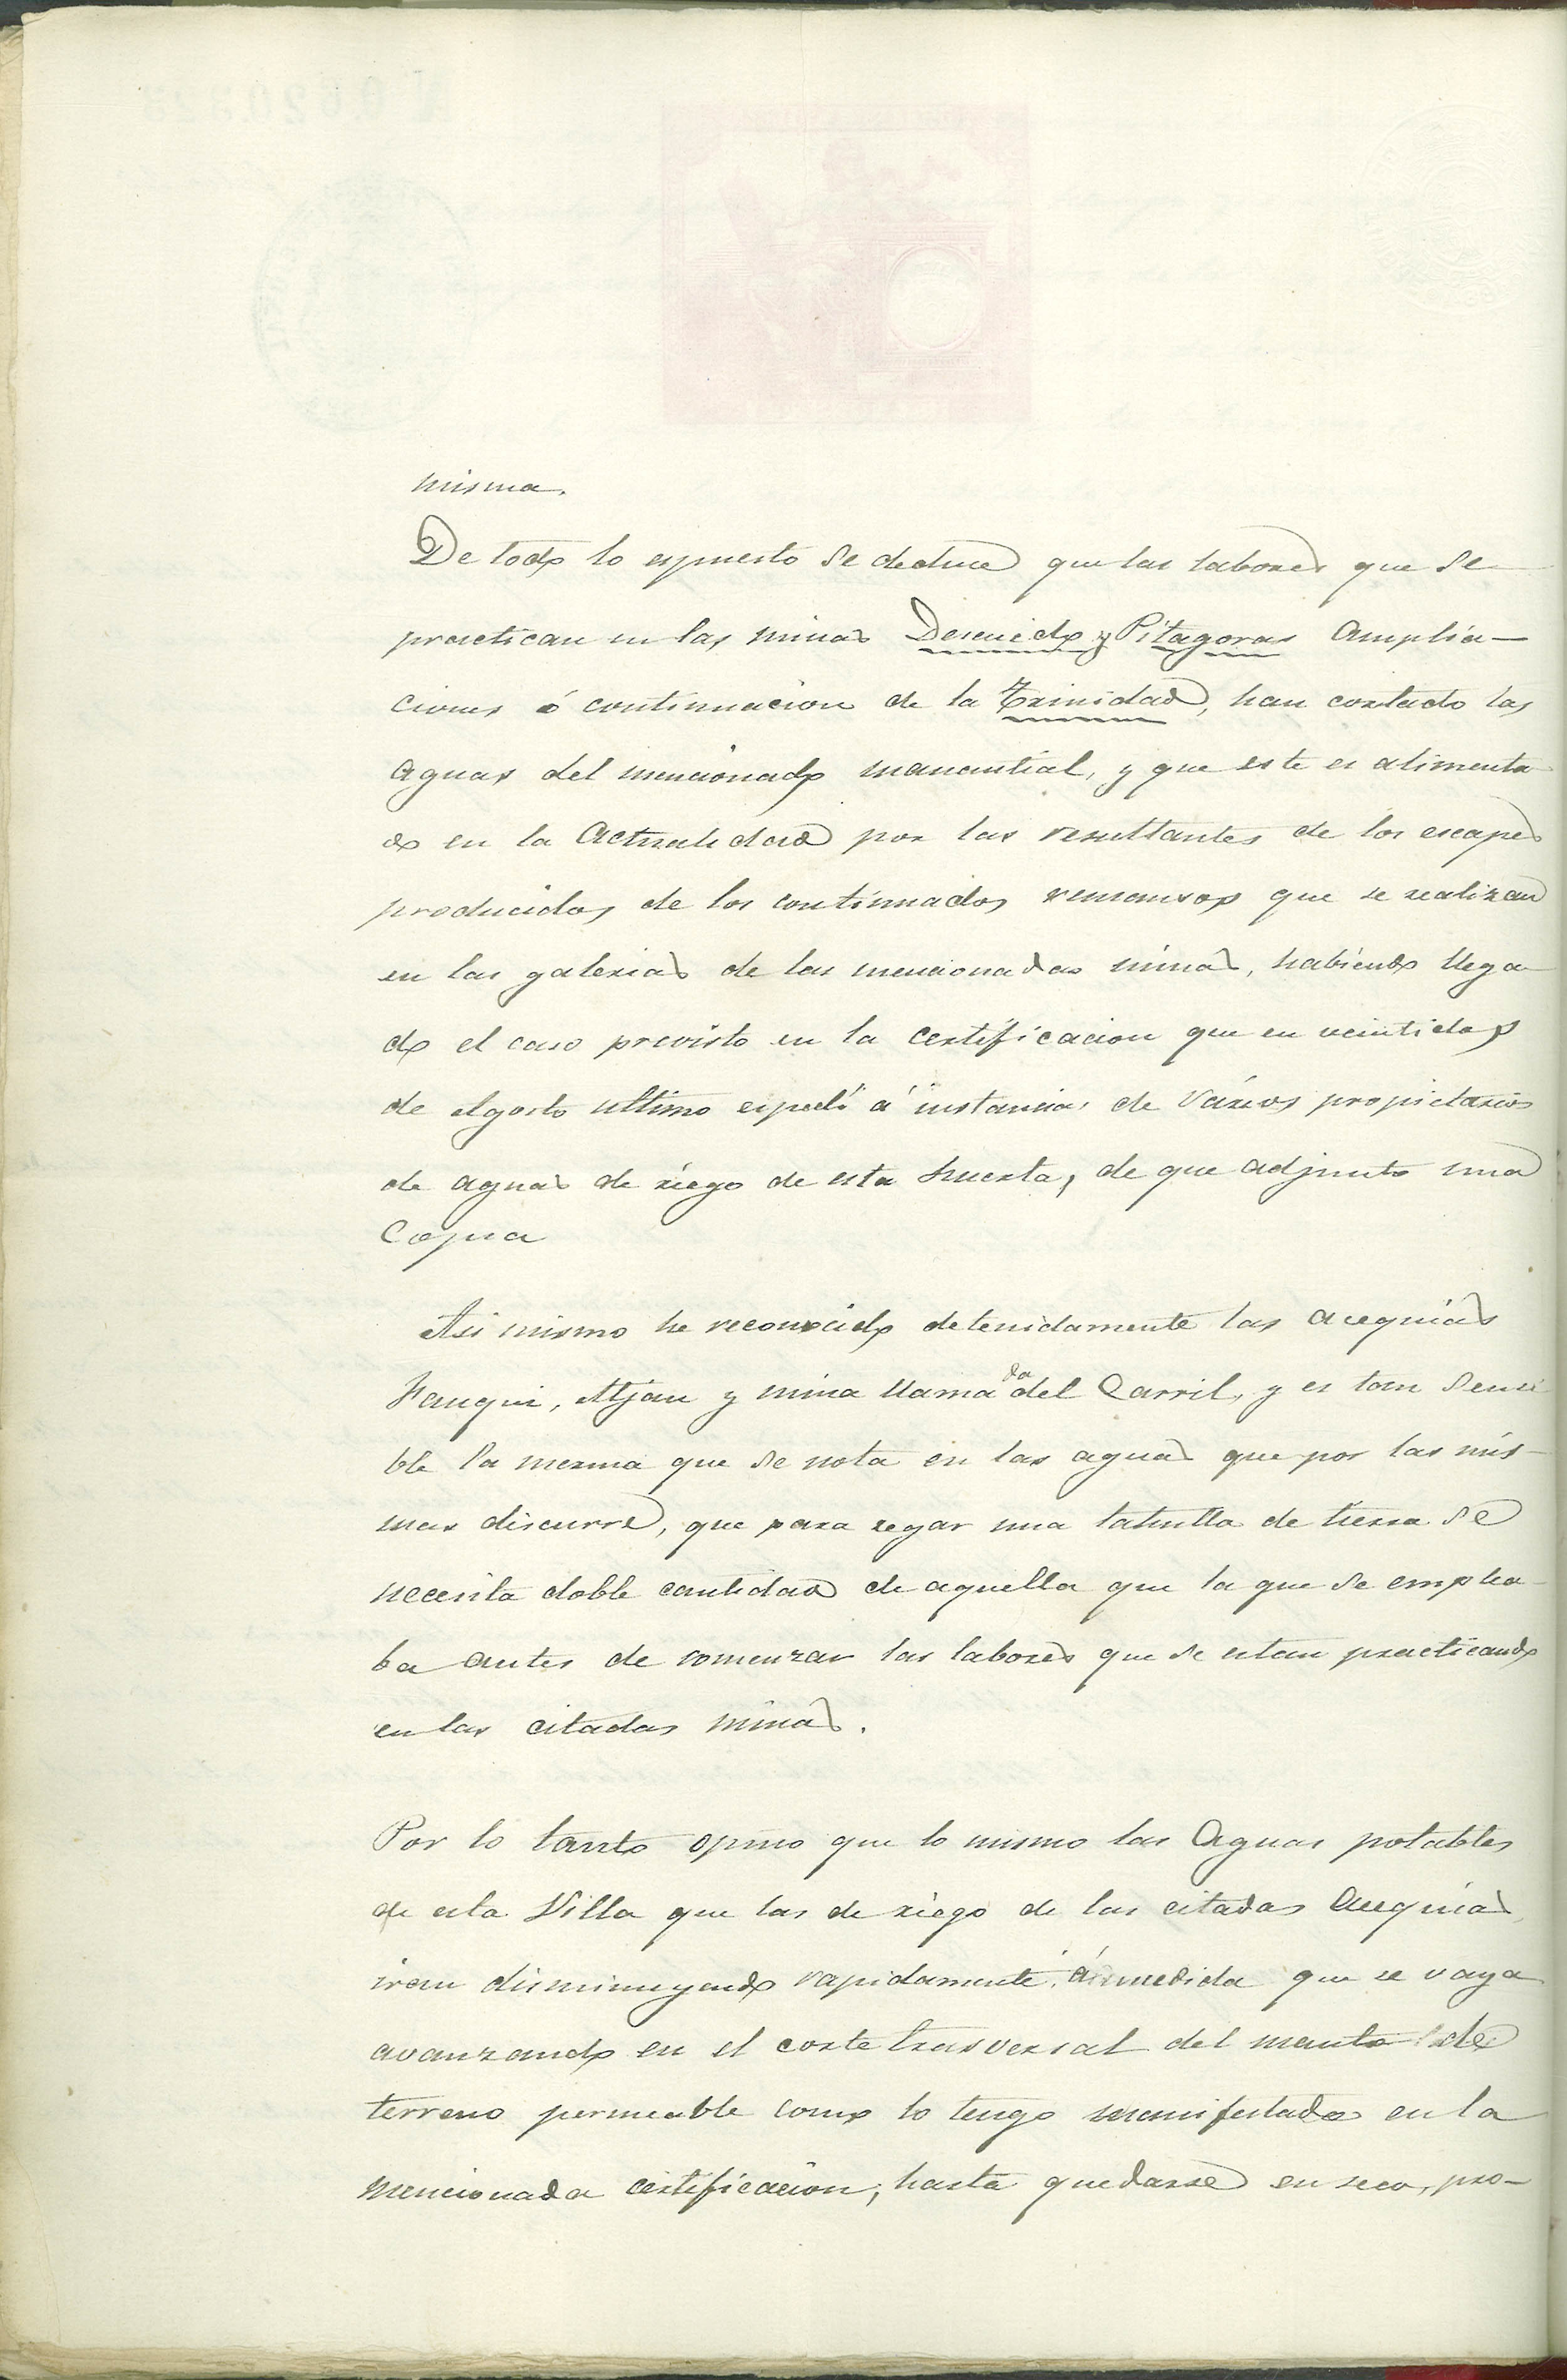 misma.
De todo lo espuesto se deduce que las labores que se
practican en las minas Descuido y Pitagoras amplia-
ciones ó continuacion de la Trinidad, han cortado las
aguas del mencionado manantial, y que este es alimenta
do en la actualidad por las resultantes de los escapes
producidos de los continuados remansos que se realizan
en las galerias de las mencionadas minas, habiendo llega
do el caso previsto en la certificacion que en veintidos
de Agosto ultimo espedí á instancias de varios propietarios
de aguas de riego de esta huerta, de que adjunto una
Copia
Asi mismo he reconocido detenidamente las acequias
Fauqui, Mjan y mina llamada del Carril, y es tan sensi
ble la merma que se nota en las aguas que por las mis-
mas discurre, que para regar una tahulla de tierra se
necesita doble cantidad de aquella que la que se emplea-
ba antes de comenzar las labores que se estan practicando
en las citadas minas.
Por lo tanto opino que lo mismo las aguas potables
de esta Villa que las de riego de las citadas acequias
iran disminuyendo rapidamente, á medida que se vaya
avanzando en el corte trasversal del manto de
terreno permeable como lo tengo manifestado en la
mencionada certificacion, hasta quedarse en seco, pro-